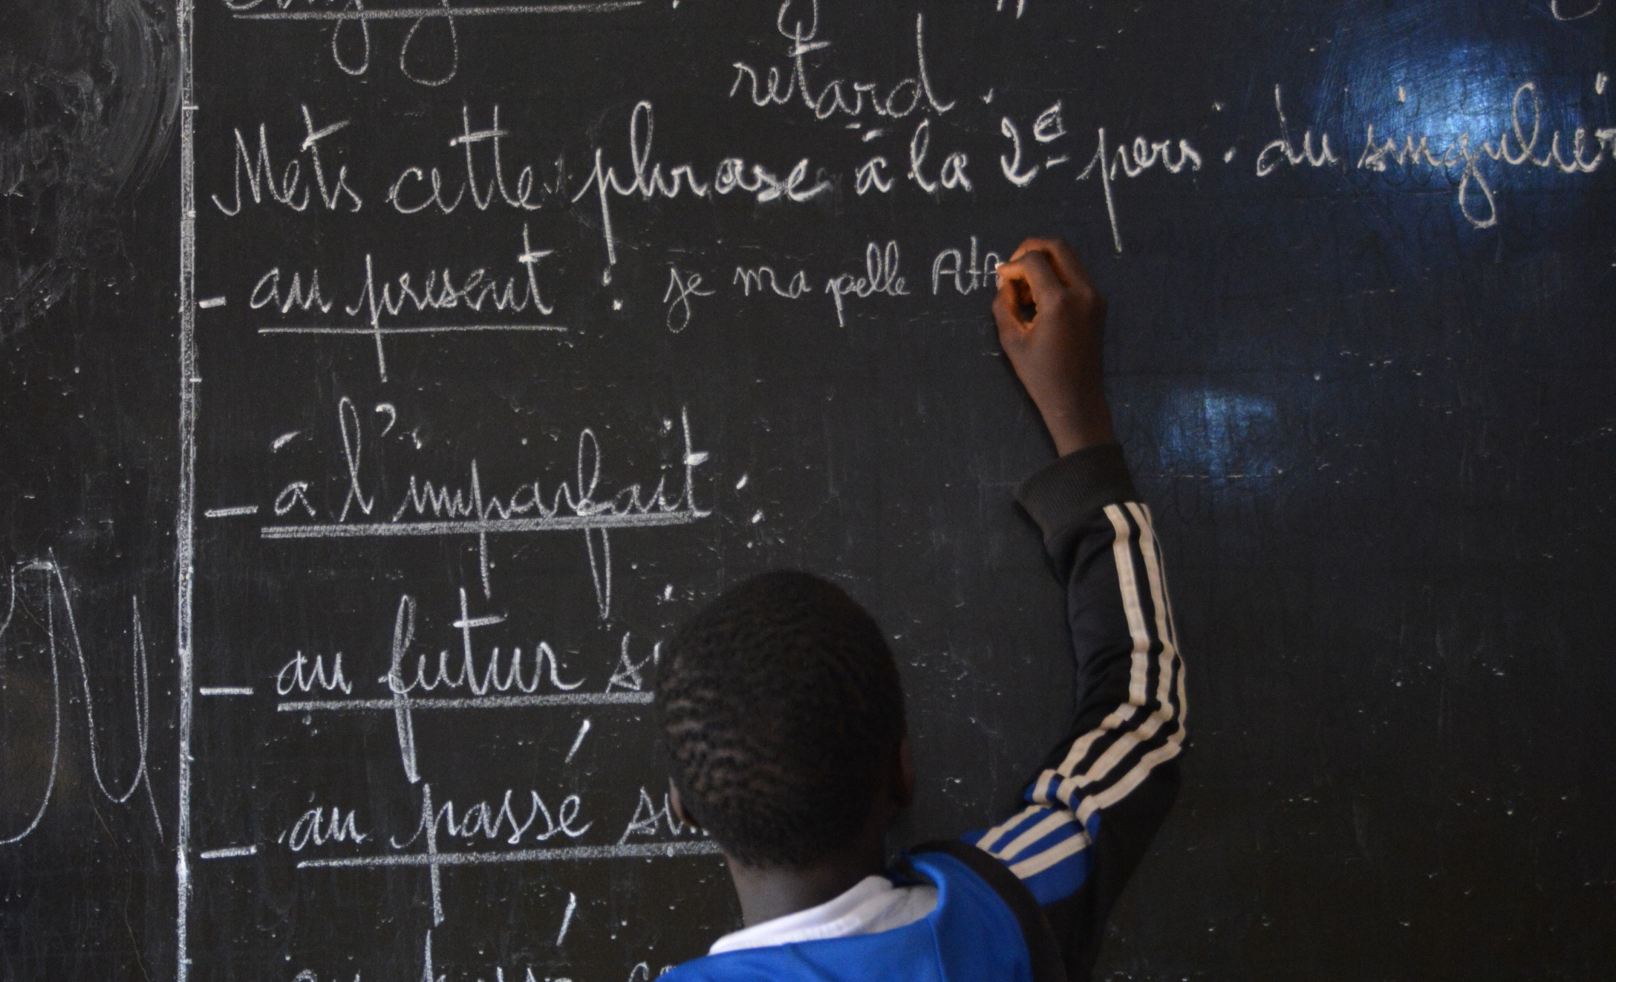 retard.
Mets cette phrase à la 2e pers. du singulier
- au présent : je ma pelle
- à l'imparfait :
- au futur
- au passé